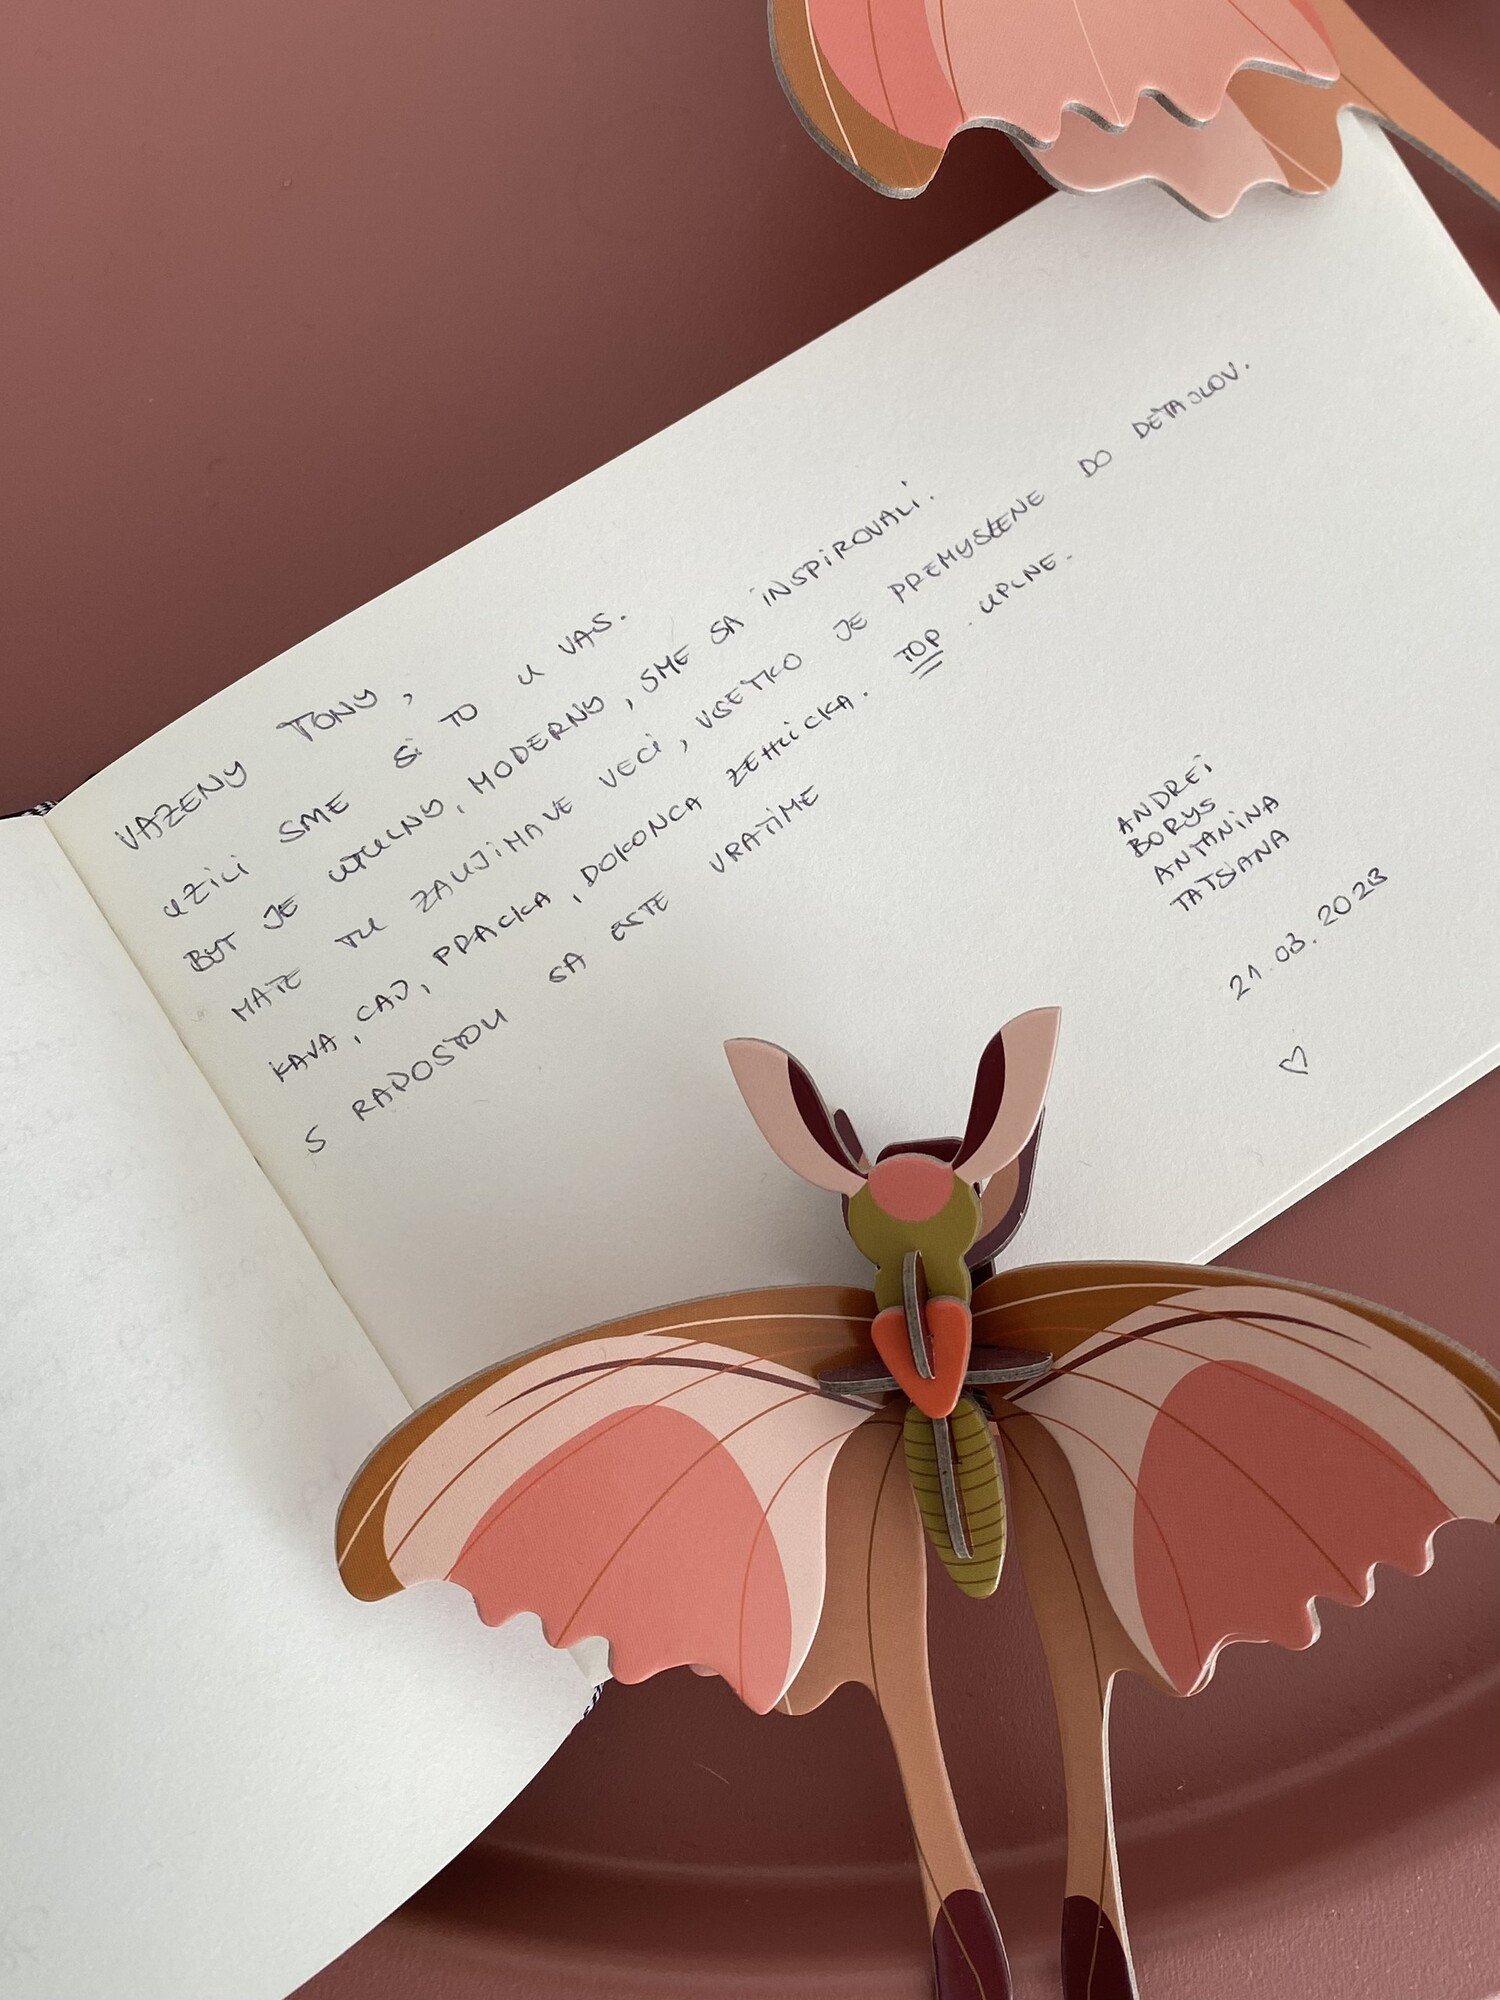 VAZENY TONY,
UZILI SME SI TO U VAS.
BYT JE UTULNY, MODERNY, SME SA INSPIROVALI.
MATE TU ZAUJIMAVE VECI, VSETKO JE PREMYSLENE DO DETAJLOV.
KAVA, CAJ, PRACKA, DOKONCA ZEHLICKA. TOP. UPLNE.
S RADOSTOU SA ESTE VRATIME
ANDREI
BORYS
ANTANINA
TATSIANA
21.03.2023
♡